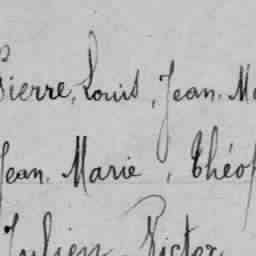 Pierre, Louis, Jean. Ma
Jean. Marie, Théop
Julien Victor